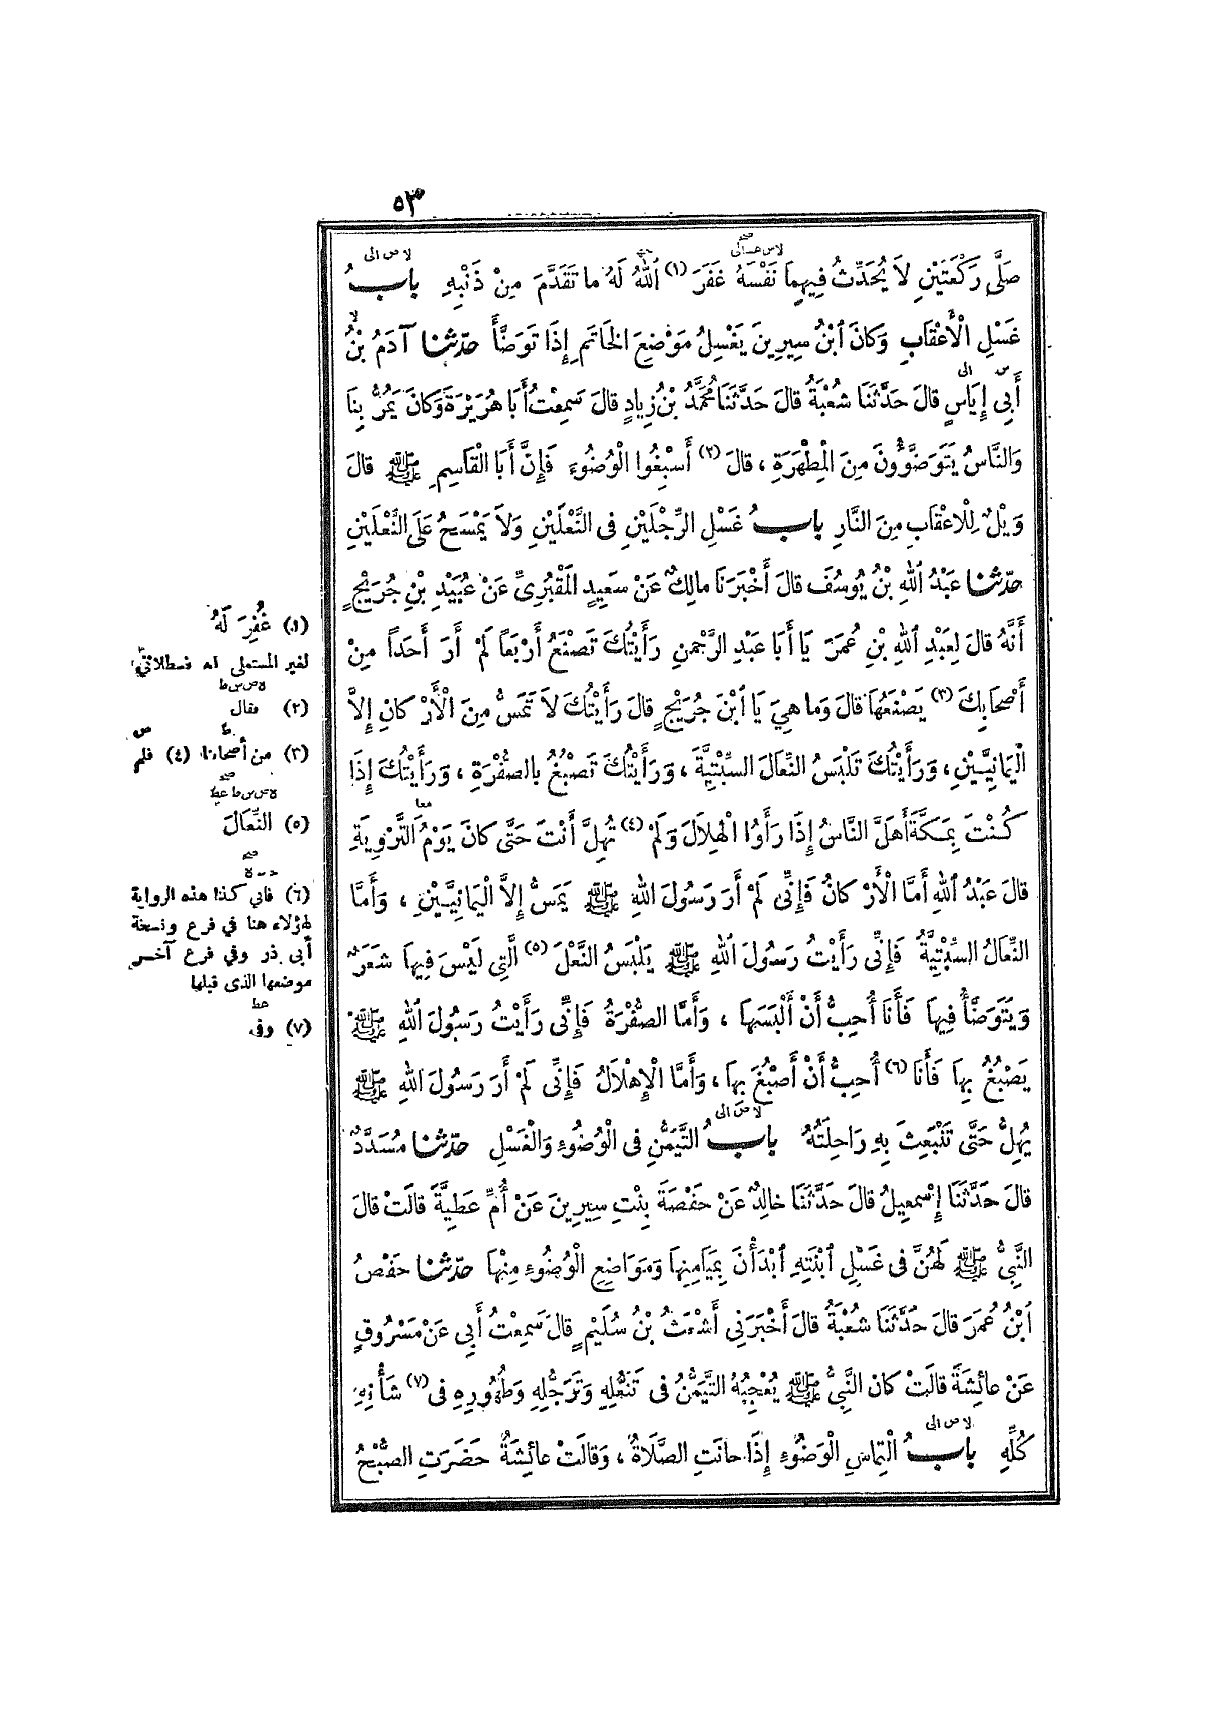 ٥٣
صَلَّى رَكْعَتَيْنِ لاَ يُحَدِّثُ فِيهِمَا نَفْسَهُ غَفَرَ (١) ٱللهُ لَهُ ما تَقَدَّمَ مِنْ ذَنْبِهِ بابُ
غَسْلِ الْأَعْقَابِ وَكانَ ٱبْنُ سِيرِينَ يَغْسِلُ مَوْضِعَ الخَاتَمِ إِذَا تَوَضَّأَ حدّثنا آدَمُ بْنُ
أَبِي إِيَاسٍ قالَ حَدَّثَنَا شُعْبَةُ قالَ حَدَّثَنَا مُحَمَّدُ بْنُ زِيادٍ قالَ سَمِعْتُ أَبَا هُرَيْرَةَ وَكانَ يَمُرُّ بِنَا
وَالنَّاسُ يَتَوَضَّؤُونَ مِنَ الْمِطْهَرَةِ ، قالَ (٢) أَسْبِغُوا الْوُضُوءَ فَإِنَّ أَبَا الْقَاسِمِ ﷺ قالَ
وَيْلٌ لِلْأَعْقَابِ مِنَ النَّارِ بابُ غَسْلِ الرِّجْلَيْنِ فِى النَّعْلَيْنِ وَلاَ يَمْسَحُ عَلَى النَّعْلَيْنِ
حدّثنا عَبْدُ ٱللهِ بْنُ يُوسُفَ قالَ أَخْبَرَنَا مالِكٌ عَنْ سَعِيدٍ الْمَقْبُرِيِّ عَنْ عُبَيْدِ بْنِ جُرَيْجٍ
أَنَّهُ قالَ لِعَبْدِ ٱللهِ بْنِ عُمَرَ يَا أَبَا عَبْدِ الرَّحْمنِ رَأَيْتُكَ تَصْنَعُ أَرْبَعاً لَمْ أَرَ أَحَداً مِنْ
أَصْحَابِكَ (٣) يَصْنَعُهَا قالَ وَما هِيَ يَا ٱبْنَ جُرَيْجٍ قالَ رَأَيْتُكَ لاَ تَمَسُّ مِنَ الْأَرْكانِ إِلاَّ
الْيَمانِيَّيْنِ ، وَرَأَيْتُكَ تَلْبَسُ النِّعَالَ السِّبْتِيَّةَ ، وَرَأَيْتُكَ تَصْبُغُ بِالصُّفْرَةِ ، وَرَأَيْتُكَ إِذَا
كُنْتَ بِمَكَّةَ أَهَلَّ النَّاسُ إِذَا رَأَوُا الْهِلاَلَ وَلَمْ (٤) تُهِلَّ أَنْتَ حَتَّى كانَ يَوْمُ التَّرْوِيَةِ
قالَ عَبْدُ ٱللهِ أَمَّا الْأَرْكانُ فَإِنِّى لَمْ أَرَ رَسُولَ ٱللهِ ﷺ يَمَسُّ إِلاَّ الْيَمانِيَّيْنِ ، وَأَمَّا
النِّعَالُ السِّبْتِيَّةُ فَإِنِّى رَأَيْتُ رَسُولَ ٱللهِ ﷺ يَلْبَسُ النَّعْلَ (٥) الَّتِى لَيْسَ فِيهَا شَعَرٌ
وَيَتَوَضَّأُ فِيهَا فَأَنَا أُحِبُّ أَنْ أَلْبَسَهَا ، وَأَمَّا الصُّفْرَةُ فَإِنِّى رَأَيْتُ رَسُولَ ٱللهِ ﷺ
يَصْبُغُ بِهَا فَأَنَا (٦) أُحِبُّ أَنْ أَصْبُغَ بِهَا ، وَأَمَّا الْإِهْلاَلُ فَإِنِّى لَمْ أَرَ رَسُولَ ٱللهِ ﷺ
يُهِلُّ حَتَّى تَنْبَعِثَ بِهِ رَاحِلَتُهُ بابُ التَّيَمُّنِ فِى الْوُضُوءِ وَالْغَسْلِ حدّثنا مُسَدَّدٌ
قالَ حَدَّثَنَا إِسْمعِيلُ قالَ حَدَّثَنَا خالِدٌ عَنْ حَفْصَةَ بِنْتِ سِيرِينَ عَنْ أُمِّ عَطِيَّةَ قالَتْ قالَ
النَّبِىُّ ﷺ لَهُنَّ فِى غَسْلِ ٱبْنَتِهِ ٱبْدَأْنَ بِمَيَامِنِهَا وَمَوَاضِعِ الْوُضُوءِ مِنْهَا حدّثنا حَفْصُ
ٱبْنُ عُمَرَ قالَ حَدَّثَنَا شُعْبَةُ قالَ أَخْبَرَنِى أَشْعَثُ بْنُ سُلَيْمٍ قالَ سَمِعْتُ أَبِى عَنْ مَسْرُوقٍ
عَنْ عائِشَةَ قالَتْ كانَ النَّبِىُّ ﷺ يُعْجِبُهُ التَّيَمُّنُ فِى تَنَعُّلِهِ وَتَرَجُّلِهِ وَطُهُورِهِ فِى (٧) شَأْنِهِ
كُلِّهِ بابُ الْتِماسِ الْوَضُوءِ إِذَا حانَتِ الصَّلاَةُ ، وَقالَتْ عائِشَةُ حَضَرَتِ الصُّبْحُ
(١) غُفِرَ لَهُ
لغير المستملى اه قسطلانى
(٢) فقال
(٣) من أصحابنا (٤) فلم
(٥) النِّعَالَ
(٦) فاني كذا هذه الرواية
لهؤلاء هنا في فرع ونسخة
أبى ذر وفي فرع آخر
موضعها الذى قبلها
(٧) وفى